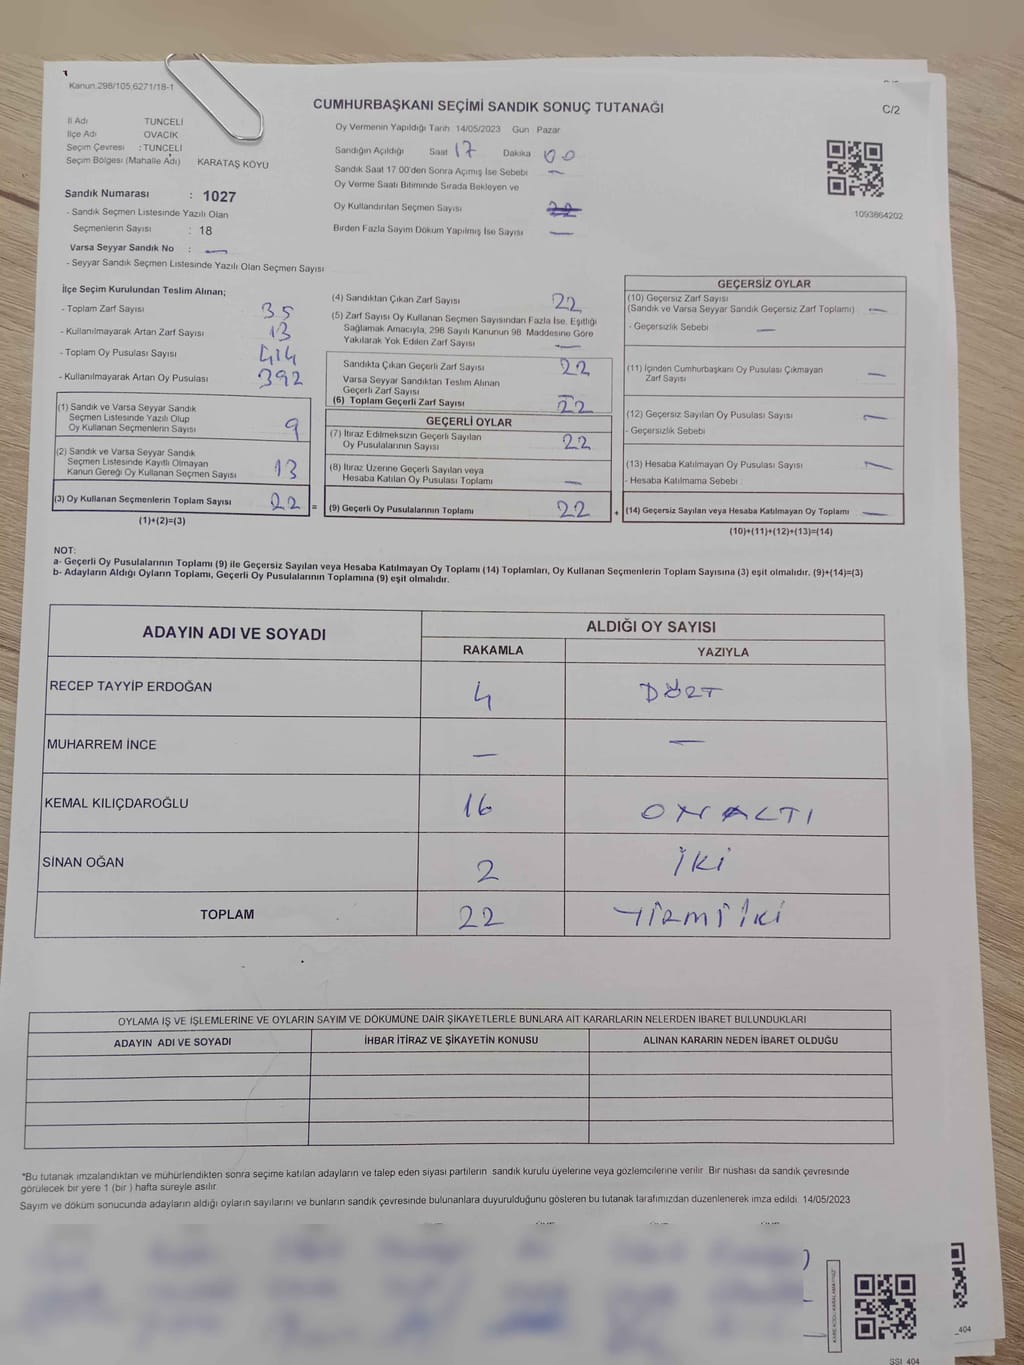 Kanun.298/105,6271/18-1
CUMHURBAŞKANI SEÇİMİ SANDIK SONUÇ TUTANAĞI
C/2
İl Adı TUNCELİ
İlçe Adı OVACIK
Seçim Çevresi : TUNCELİ
Seçim Bölgesi (Mahalle Adı) KARATAŞ KÖYÜ
Sandık Numarası : 1027
- Sandık Seçmen Listesinde Yazılı Olan
Seçmenlerin Sayısı : 18
Varsa Seyyar Sandık No : —
- Seyyar Sandık Seçmen Listesinde Yazılı Olan Seçmen Sayısı
Oy Vermenin Yapıldığı Tarih 14/05/2023 Gün Pazar
Sandığın Açıldığı Saat 17 Dakika 00
Sandık Saat 17 00'den Sonra Açımış İse Sebebi —
Oy Verme Saati Bitiminde Sırada Bekleyen ve
Oy Kullandırılan Seçmen Sayısı 22
Birden Fazla Sayım Döküm Yapılmış İse Sayısı —
1093864202
İlçe Seçim Kurulundan Teslim Alınan;
- Toplam Zarf Sayısı 35
- Kullanılmayarak Artan Zarf Sayısı 13
- Toplam Oy Pusulası Sayısı 414
- Kullanılmayarak Artan Oy Pusulası 392
(1) Sandık ve Varsa Seyyar Sandık
Seçmen Listesinde Yazılı Olup
Oy Kullanan Seçmenlerin Sayısı 9
(2) Sandık ve Varsa Seyyar Sandık
Seçmen Listesinde Kayıtlı Olmayan
Kanun Gereği Oy Kullanan Seçmen Sayısı 13
(3) Oy Kullanan Seçmenlerin Toplam Sayısı 22 =
(1)+(2)=(3)
(4) Sandıktan Çıkan Zarf Sayısı 22
(5) Zarf Sayısı Oy Kullanan Seçmen Sayısından Fazla İse, Eşitliği
Sağlamak Amacıyla, 298 Sayılı Kanunun 98. Maddesine Göre
Yakılarak Yok Edilen Zarf Sayısı —
Sandıkta Çıkan Geçerli Zarf Sayısı 22
Varsa Seyyar Sandıktan Teslim Alınan
Geçerli Zarf Sayısı —
(6) Toplam Geçerli Zarf Sayısı 22
GEÇERLİ OYLAR
(7) İtiraz Edilmeksizin Geçerli Sayılan
Oy Pusulalarının Sayısı 22
(8) İtiraz Üzerine Geçerli Sayılan veya
Hesaba Katılan Oy Pusulası Toplamı —
(9) Geçerli Oy Pusulalarının Toplamı 22 +
GEÇERSİZ OYLAR
(10) Geçersiz Zarf Sayısı
(Sandık ve Varsa Seyyar Sandık Geçersiz Zarf Toplamı) —
- Geçersizlik Sebebi —
(11) İçinden Cumhurbaşkanı Oy Pusulası Çıkmayan
Zarf Sayısı —
(12) Geçersiz Sayılan Oy Pusulası Sayısı —
- Geçersizlik Sebebi
(13) Hesaba Katılmayan Oy Pusulası Sayısı —
- Hesaba Katılmama Sebebi
(14) Geçersiz Sayılan veya Hesaba Katılmayan Oy Toplamı —
(10)+(11)+(12)+(13)=(14)
NOT:
a- Geçerli Oy Pusulalarının Toplamı (9) ile Geçersiz Sayılan veya Hesaba Katılmayan Oy Toplamı (14) Toplamları, Oy Kullanan Seçmenlerin Toplam Sayısına (3) eşit olmalıdır. (9)+(14)=(3)
b- Adayların Aldığı Oyların Toplamı, Geçerli Oy Pusulalarının Toplamına (9) eşit olmalıdır.
ADAYIN ADI VE SOYADI ALDIĞI OY SAYISI
RAKAMLA YAZIYLA
RECEP TAYYİP ERDOĞAN 4 DÖRT
MUHARREM İNCE — —
KEMAL KILIÇDAROĞLU 16 ONALTI
SİNAN OĞAN 2 İKİ
TOPLAM 22 YİRMİ İKİ
OYLAMA İŞ VE İŞLEMLERİNE VE OYLARIN SAYIM VE DÖKÜMÜNE DAİR ŞİKAYETLERLE BUNLARA AİT KARARLARIN NELERDEN İBARET BULUNDUKLARI
ADAYIN ADI VE SOYADI İHBAR İTİRAZ VE ŞİKAYETİN KONUSU ALINAN KARARIN NEDEN İBARET OLDUĞU
*Bu tutanak imzalandıktan ve mühürlendikten sonra seçime katılan adayların ve talep eden siyasi partilerin sandık kurulu üyelerine veya gözlemcilerine verilir Bir nüshası da sandık çevresinde
görülecek bir yere 1 (bir ) hafta süreyle asılır.
Sayım ve döküm sonucunda adayların aldığı oyların sayılarını ve bunların sandık çevresinde bulunanlara duyurulduğunu gösteren bu tutanak tarafımızdan düzenlenerek imza edildi. 14/05/2023
SSI 404
_404